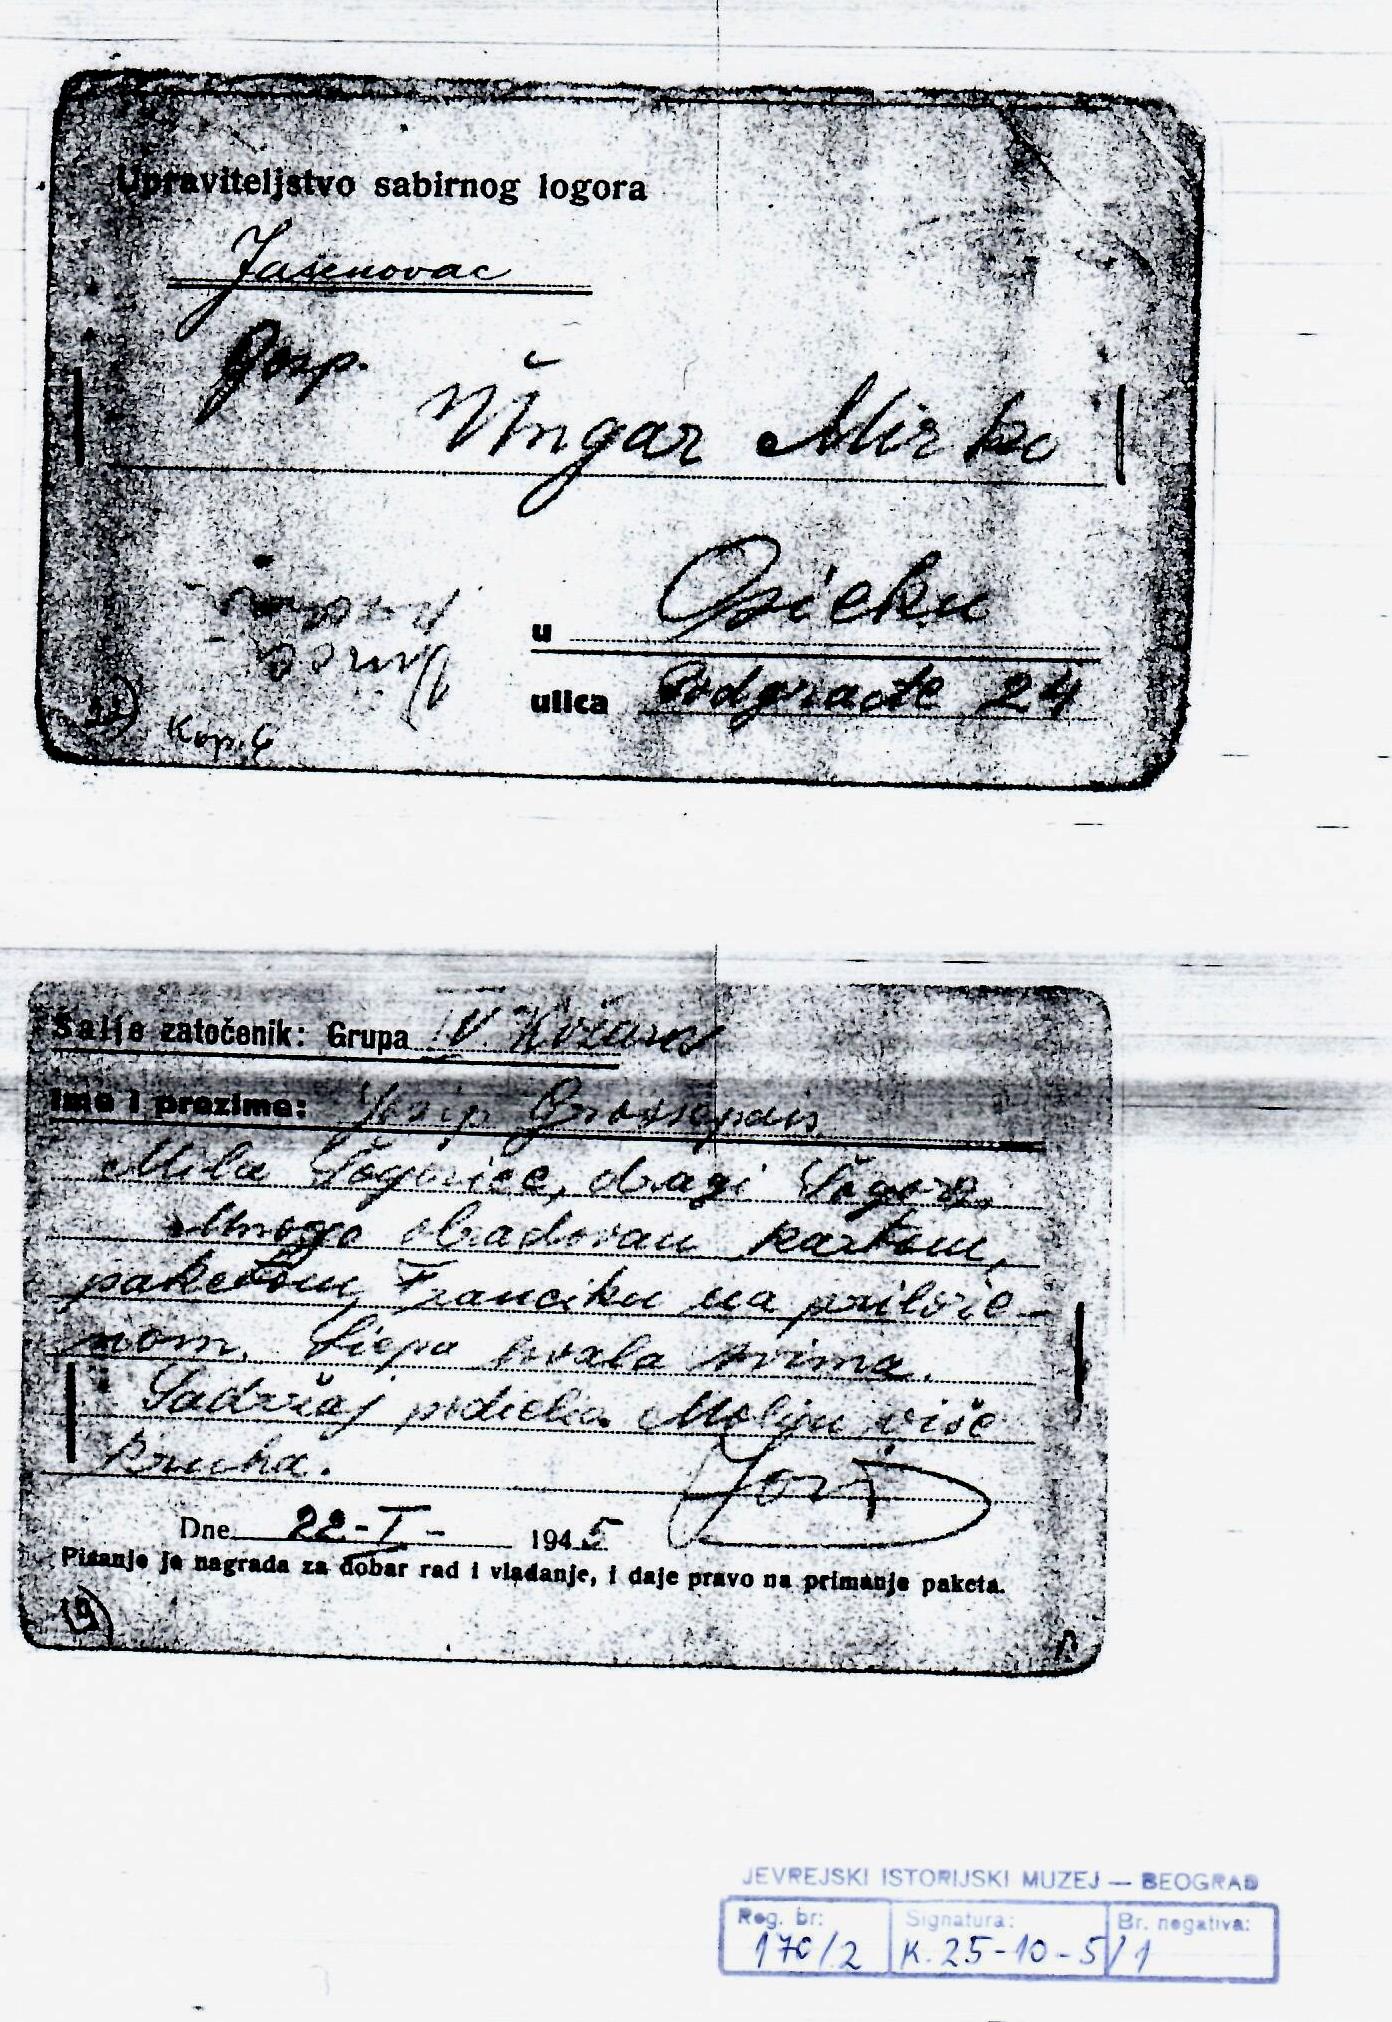 Upraviteljstvo sabirnog logora
Jasenovac
Gosp.
Ungar Mirko
u Osieku
ulica Podgrađe 24
Kop. 6
Šalje zatočenik: Grupa IV. Kožara
Ime i prezime: Josip
Mila Šogorice, dragi Šogore,
Mnogo obradovan kartom,
paketom, Franciku na prilože-
nom. Liepa hvala svima.
Sadržaj podielio. Molim više
kruha.
Dne 22-I- 1945
Pisanje je nagrada za dobar rad i vladanje, i daje pravo na primanje paketa.
19
JEVREJSKI ISTORIJSKI MUZEJ — BEOGRAD
Reg. br: Signatura: Br. negativa:
170/2 K. 25-10-5/1